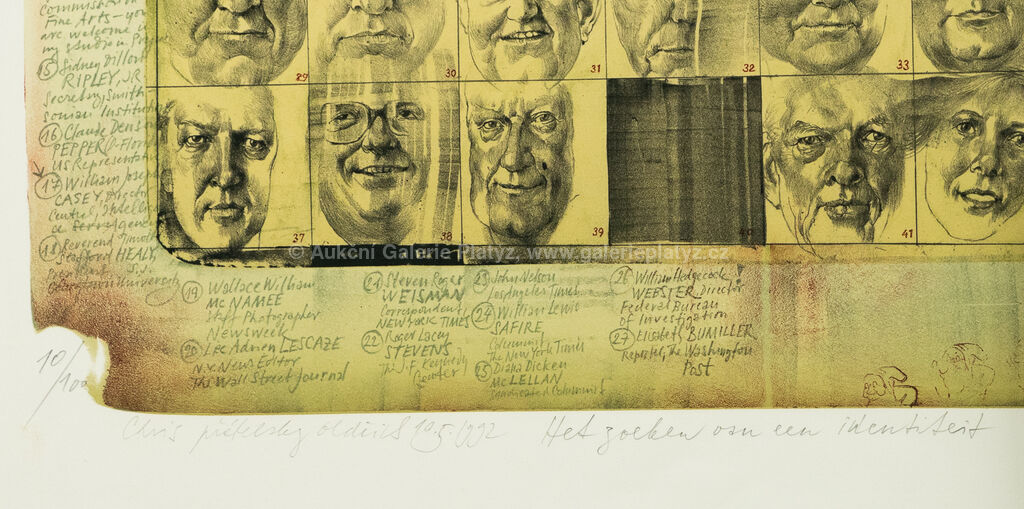 Commission
Fine Arts—you
are welcome in
my studio in
15 Sidney Dillon
RIPLEY, JR
Secretary Smith-
sonian Institution
16 Claude Dens
PEPPER
US Representat
17 William Josep
CASEY, Director
Central Intellig
18 Reverend Timoth
Stafford HEALY,
S.J.
29
30
31
32
33
37
38
39
41
© Aukční Galerie Platýz, www.galerieplatyz.cz
19 Wallace William
MC NAMEE
Staff Photographer
Newsweek
20 Lee Adrien LESCAZE
N.Y. News Editor
The Wall Street Journal
21 Steven Roger
WEISMAN
Correspondent
NEW YORK TIMES
22 Roger Lacey
STEVENS
The J.F. Kennedy
Center
23 John Nelson
Los Angeles Times
24 William Lewis
SAFIRE
Columnist
The New York Times
25 Diana Dicken
MC LELLAN
Syndicated Columnist
26 William Hedgecock
WEBSTER, Director
Federal Bureau
of Investigation
27 Elisabeth BUMILLER
Reporter, The Washington
Post
10/100
Chris přátelsky Oldřich 10.5.1992 Het zoeken van een identiteit